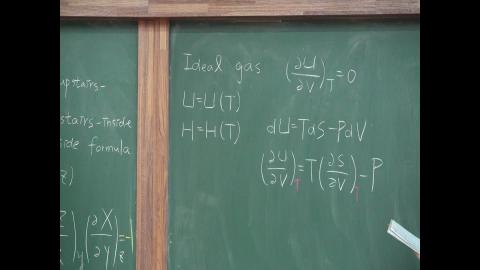 upstairs-
stairs-inside
side formula
z)
(∂X/∂y)z=-1
Ideal gas (∂U/∂V)T=0
U=U(T)
H=H(T) dU=TdS-PdV
(∂U/∂V)T=T(∂S/∂V)T-P